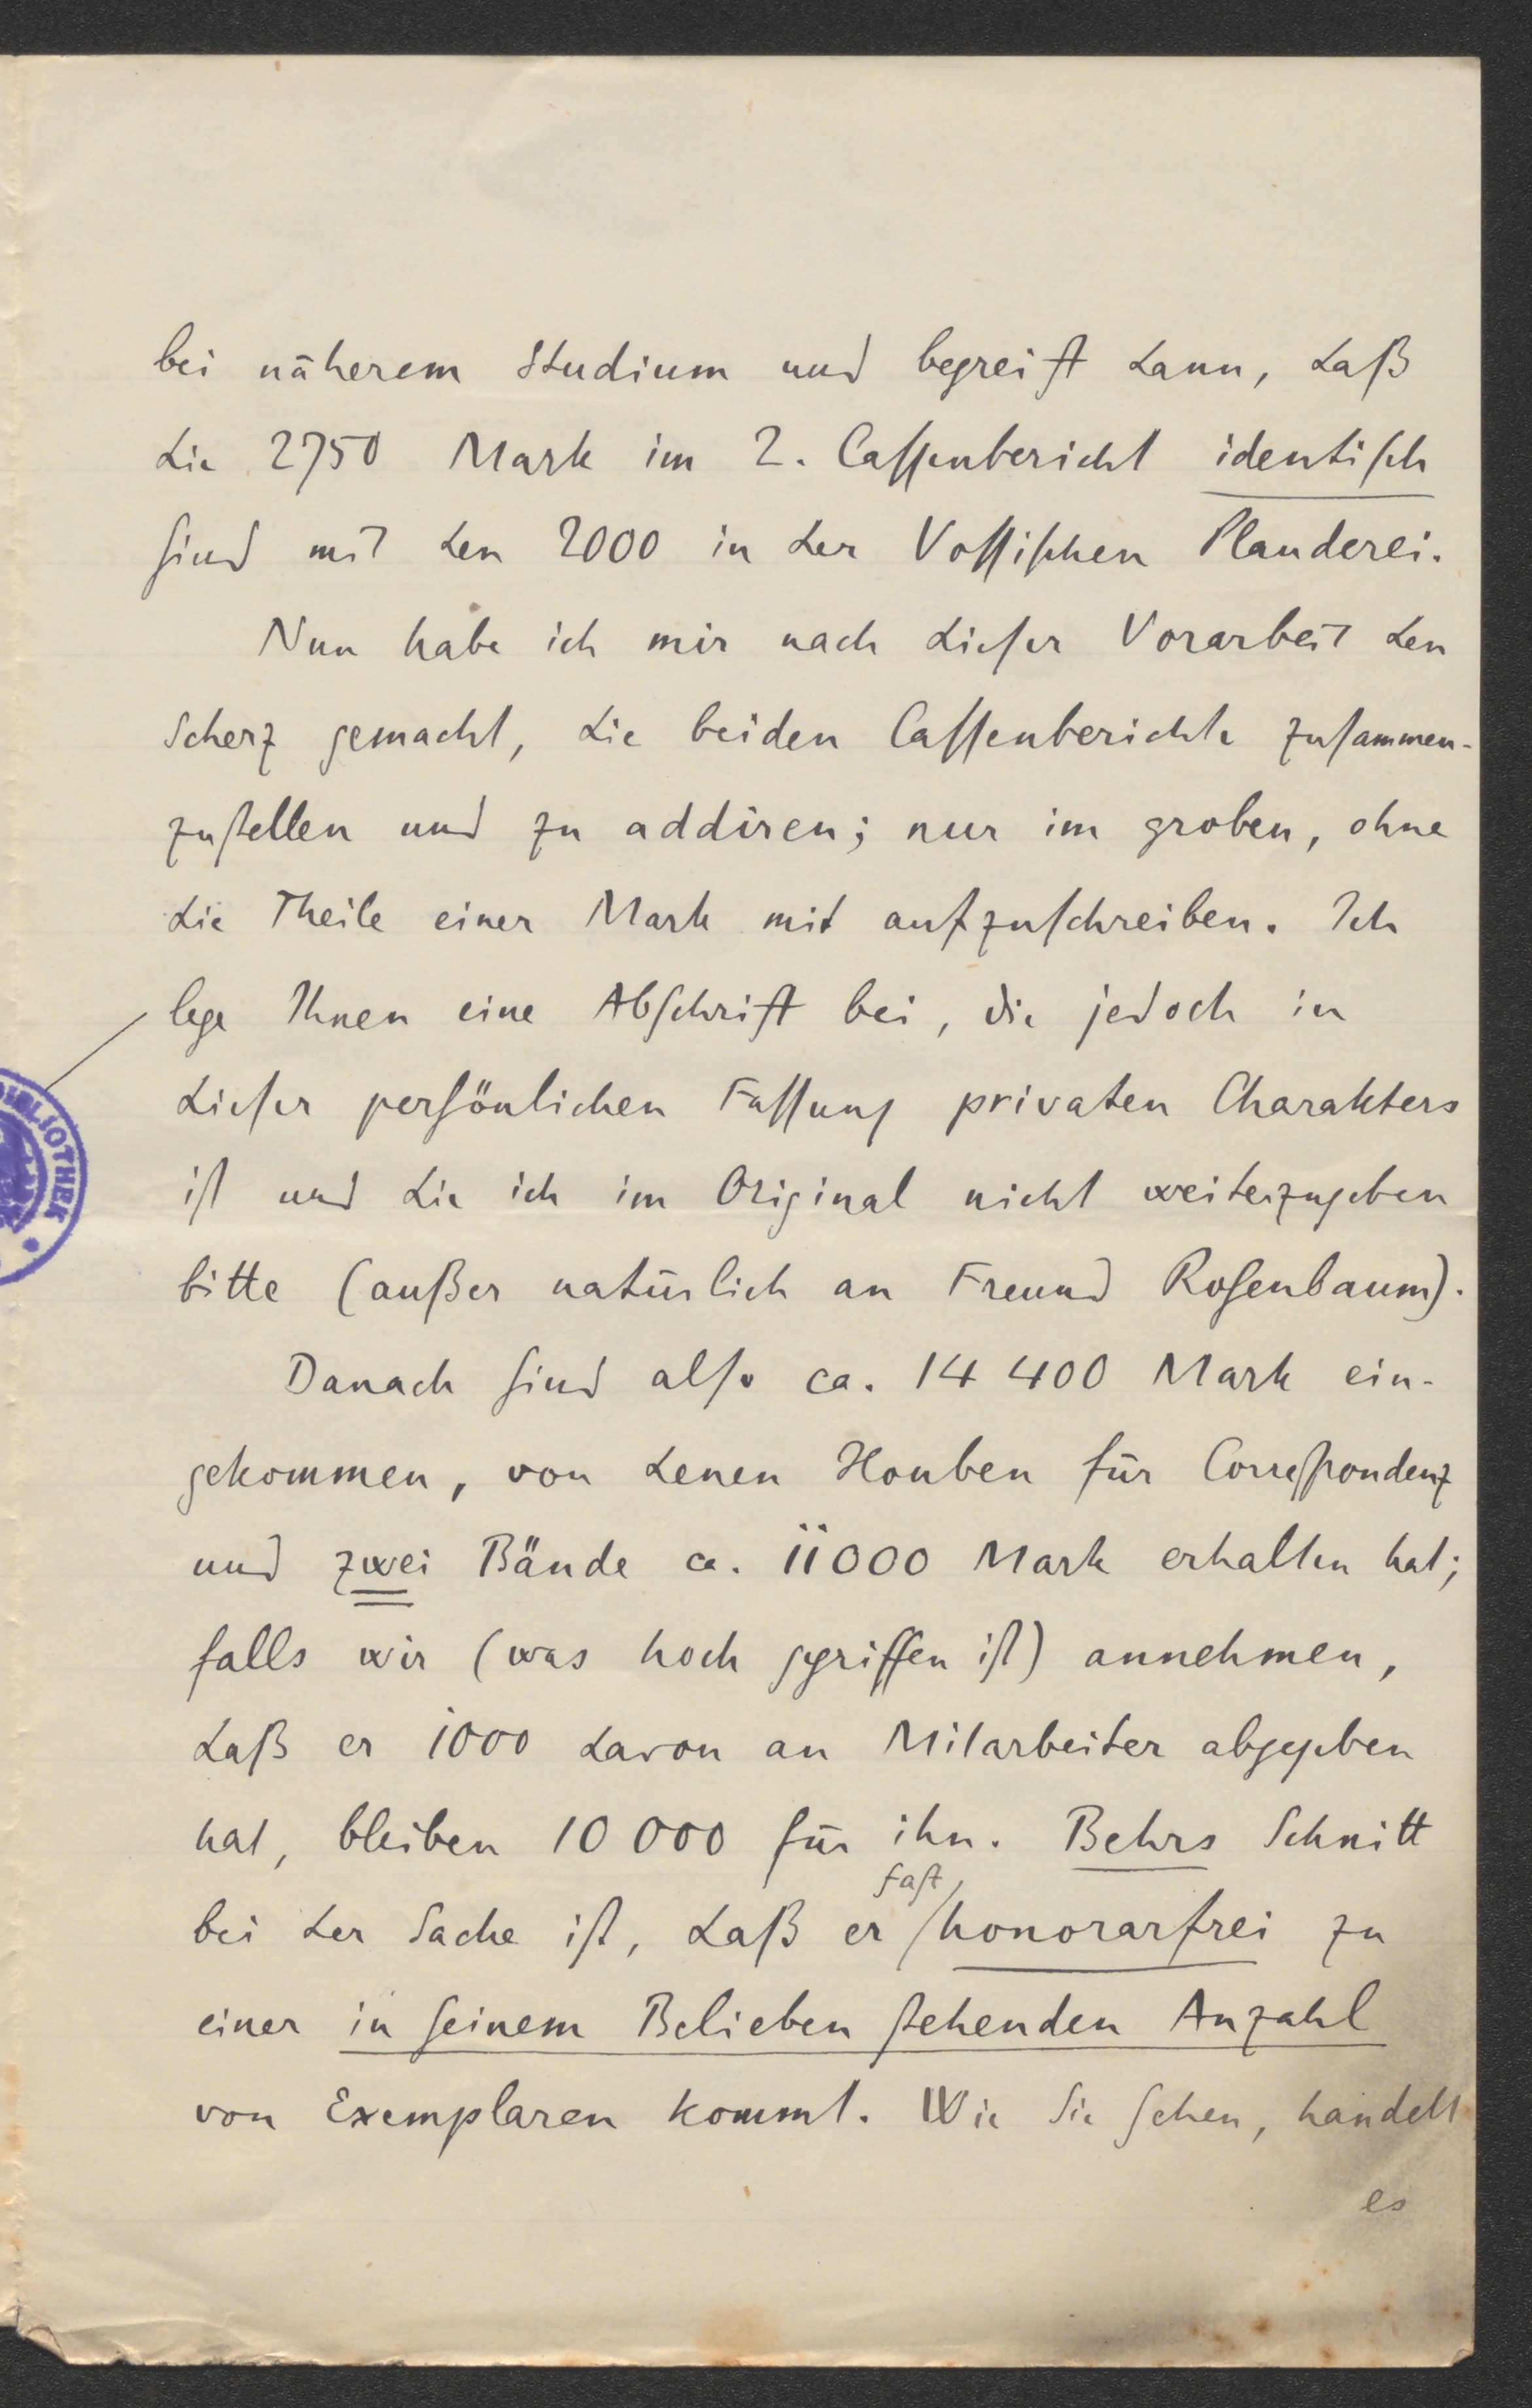 bei näherem Studium und begreift dann, daß
die 2750 Mark im 2. Cassenbericht identisch
sind mit den 2000 in der Vossischen Plauderei.
Nun habe ich mir nach dieser Vorarbeit den
Scherz gemacht, die beiden Cassenberichte zusammen-
zustellen und zu addiren; nur im groben, ohne
die Theile einer Mark mit aufzuschreiben. Ich
lege Ihnen eine Abschrift bei, die jedoch in
dieser persönlichen Fassung privaten Charakters
ist und die ich im Original nicht weiterzugeben
bitte (außer natürlich an Freund Rosenbaum).
Danach sind also ca. 14 400 Mark ein-
gekommen, von denen Houben für Correspondenz
und zwei Bände ca. 11000 Mark erhalten hat;
falls wir (was hoch gegriffen ist) annehmen,
daß er 1000 davon an Mitarbeiter abgegeben
hat, bleiben 10 000 für ihn. Behrs Schnitt
bei der Sache ist, daß er fast honorarfrei zu
einer in seinem Belieben stehenden Anzahl
von Exemplaren kommt. Wie Sie sehen, handelt
es
BIBLIOTHEK